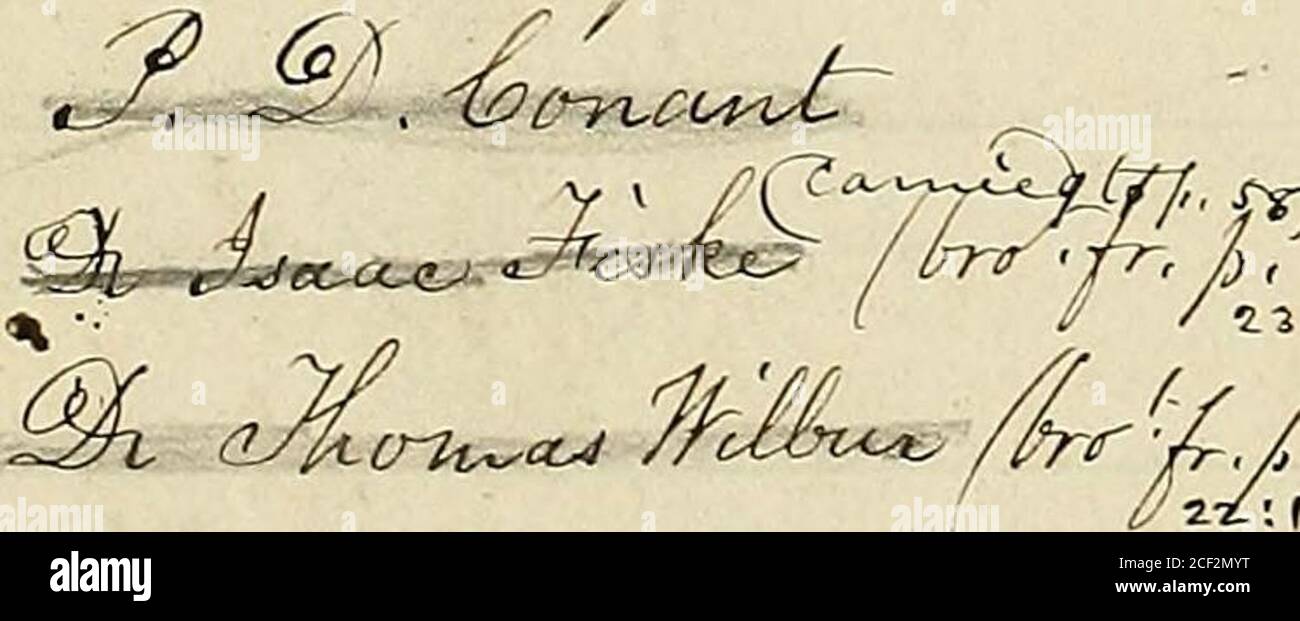 P. D. Conant
(carried to p. 58)
Dr Isaac Fiske (bro't. fr. p.
23
Dr Thomas Wilbur (bro't. fr. p
22:1
alamy
Image ID: 2CF2MYT
www.alamy.com